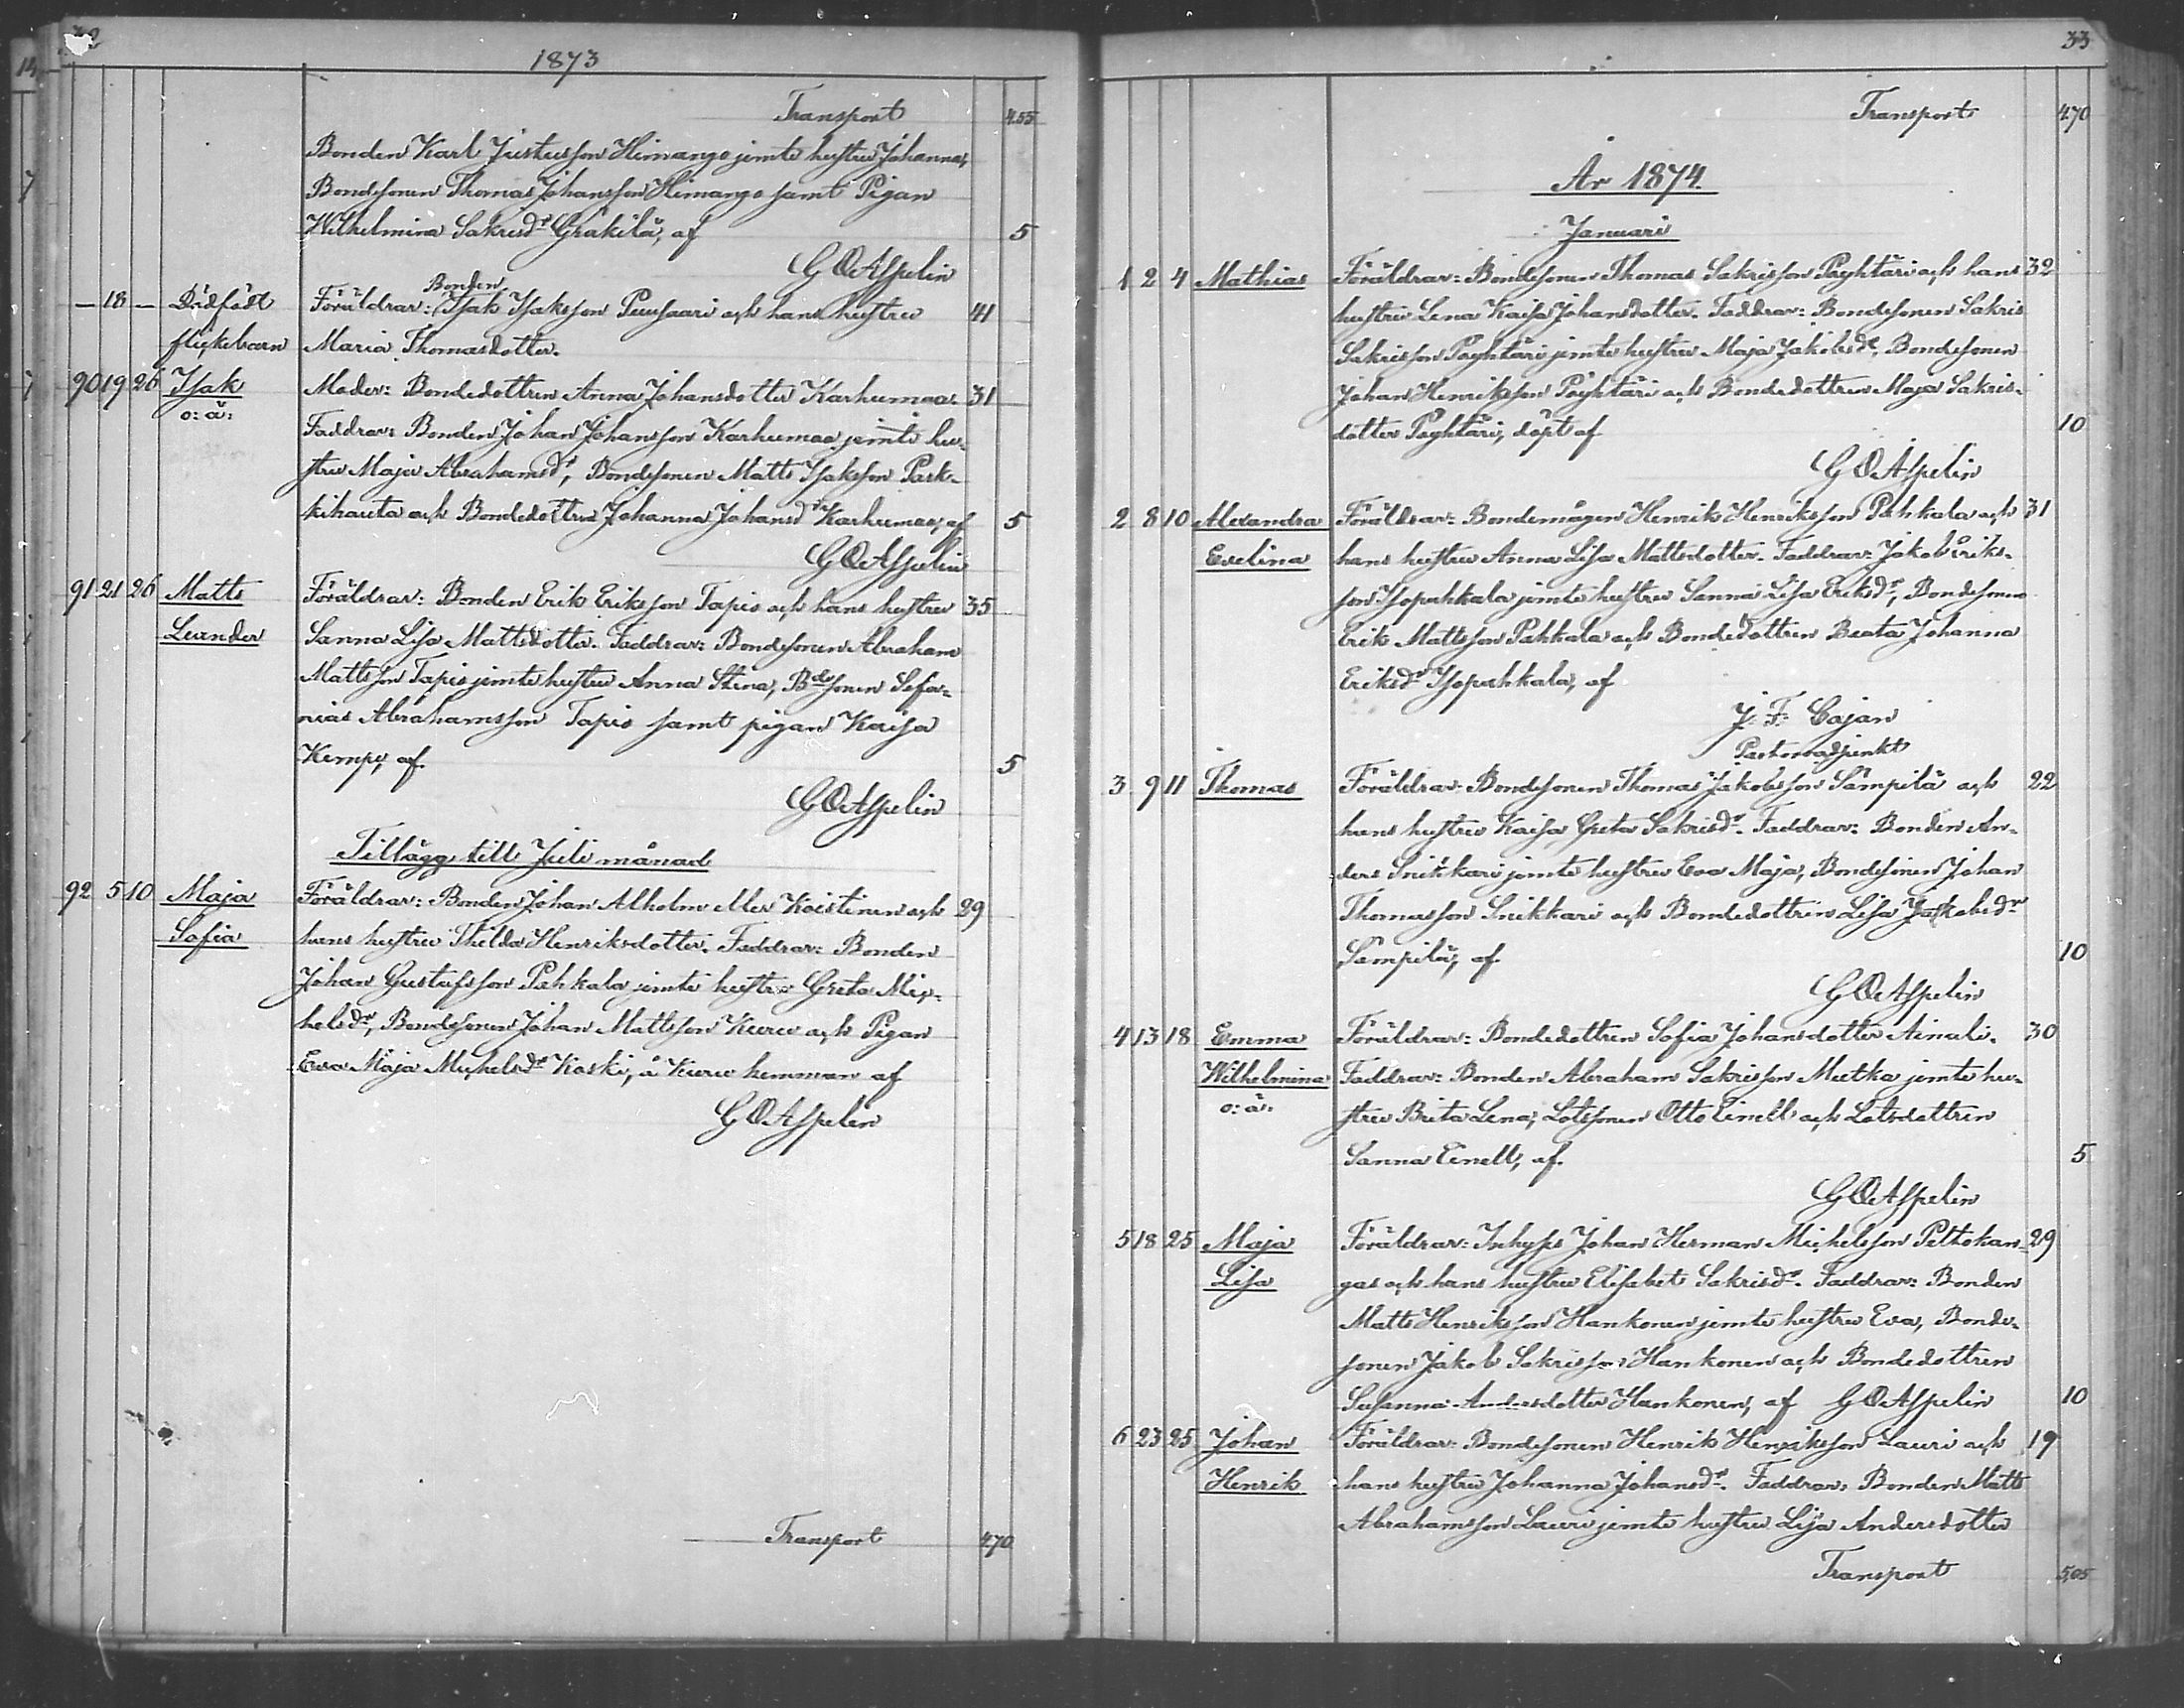 1873
Transport 4.55
Bonden Karl Justusson Himango jemte hustru Johanna,
Bondesonen Thomas Johansson Himango samt Pigan
Wilhelmina Sakrisdr Gråkilä, af 5
G O Aspelin
Bonden
— 18 — Dödfödt Föräldrar: Isak Isaksson Puusaari och hans hustru 41
flickebarn Maria Thomasdotter.
90 19 26 Isak Moder: Bondedottren Anna Johansdotter Karhumaa. 31
o: ä: Faddrar: Bonden Johan Johansson Karhumaa jemte hu-
stru Maja Abrahamsdr, Bondesonen Matts Isaksson Park-
kihauta och Bondedottren Johanna Johansdr Karhumaa, af 5
G O Aspelin
91 21 26 Matts Föräldrar: Bonden Erik Eriksson Tapio och hans hustru 35
Leander Sanna Lisa Mattsdotter. Faddrar: Bondesonen Abraham
Mattsson Tapio jemte hustru Anna Stina, Bdesonen Sefa-
nias Abrahamsson Tapio samt pigan Kaisa
Kemp, af 5
G O Aspelin
Tillägg till Juli månad
92 5 10 Maja Föräldrar: Bonden Johan Alholm eller Koistinen och 29
Sofia hans hustru Thilda Henriksdotter. Faddrar: Bonden
Johan Gustafsson Pahkala jemte hustru Greta Mic-
helsdr, Bondesonen Johan Mattsson Kuru och Pigan
Eva Maja Michelsdr Koski, å Kuru hemman af
G O Aspelin
Transport 4.70
33
Transport 4.70
År 1874.
Januari
1 2 4 Mathias Föräldrar: Bondesonen Thomas Sakrisson Pöyhtäri och hans 32
hustru Lena Kaisa Johansdotter. Faddrar: Bondesonen Sakris
Sakrisson Pöyhtäri jemte hustru Maja Jakobsdr, Bondesonen
Johan Henriksson Pöyhtäri och Bondedottren Maja Sakris-
dotter Pöyhtäri, döpt af 10
G O Aspelin
2 8 10 Alexandra Föräldrar: Bondemågen Henrik Henriksson Pahkala och 31
Evelina hans hustru Anna Lisa Mattsdotter. Faddrar: Jakob Eriks-
son Isopahkala jemte hustru Sanna Lisa Eriksdr, Bondesonen
Erik Mattsson Pahkala och Bondedottren Beata Johanna
Eriksdr Isopahkala, af
J. F. Cajan
Pastorsadjunkt
3 9 11 Thomas Föräldrar: Bondesonen Thomas Jakobsson Sämpilä och 22
hans hustru Kaisa Greta Sakrisdr. Faddrar: Bonden An-
ders Snikkari jemte hustru Eva Maja, Bondesonen Johan
Thomasson Snikkari och Bondedottren Lisa Jakobsdr
Sämpilä, af 10
G O Aspelin
4 13 18 Emma Föräldrar: Bondedottren Sofia Johansdotter Ainali. 30
Wilhelmina Faddrar: Bonden Abraham Sakrisson Mutka jemte hu-
o: ä: stru Brita Lena, Lotssonen Otto Einell och Lotsdottren
Sanna Einell, af 5
G O Aspelin
5 18 25 Maja Föräldrar: Inhyses Johan Herman Michelsson Peltokan- 29
Lisa gas och hans hustru Elisabet Sakrisdr. Faddrar: Bonden
Matts Henriksson Hankonen jemte hustru Eva, Bonde-
sonen Jakob Sakrisson Hankonen och Bondedottren
Susanna Andersdotter Hankonen, af G O Aspelin 10
6 23 25 Johan Föräldrar: Bondesonen Henrik Henriksson Lauri och 19
Henrik hans hustru Johanna Johansdr. Faddrar: Bonden Matts
Abrahamsson Lauri jemte hustru Lisa Andersdotter
Transport 5,05